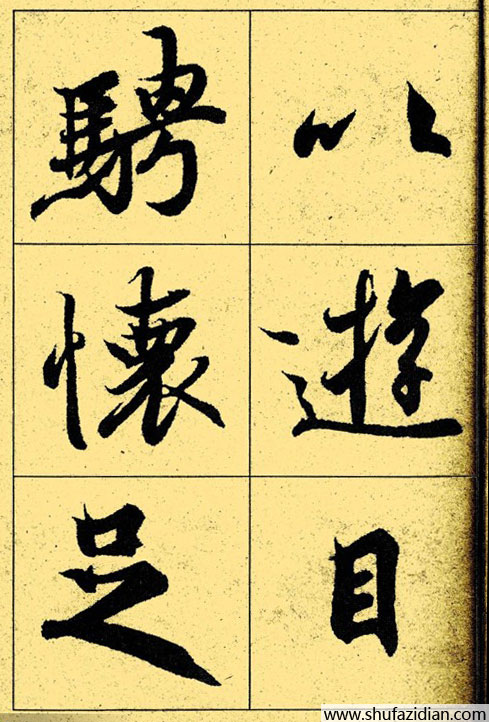 以遊目
騁懷足
www.shufazidian.com